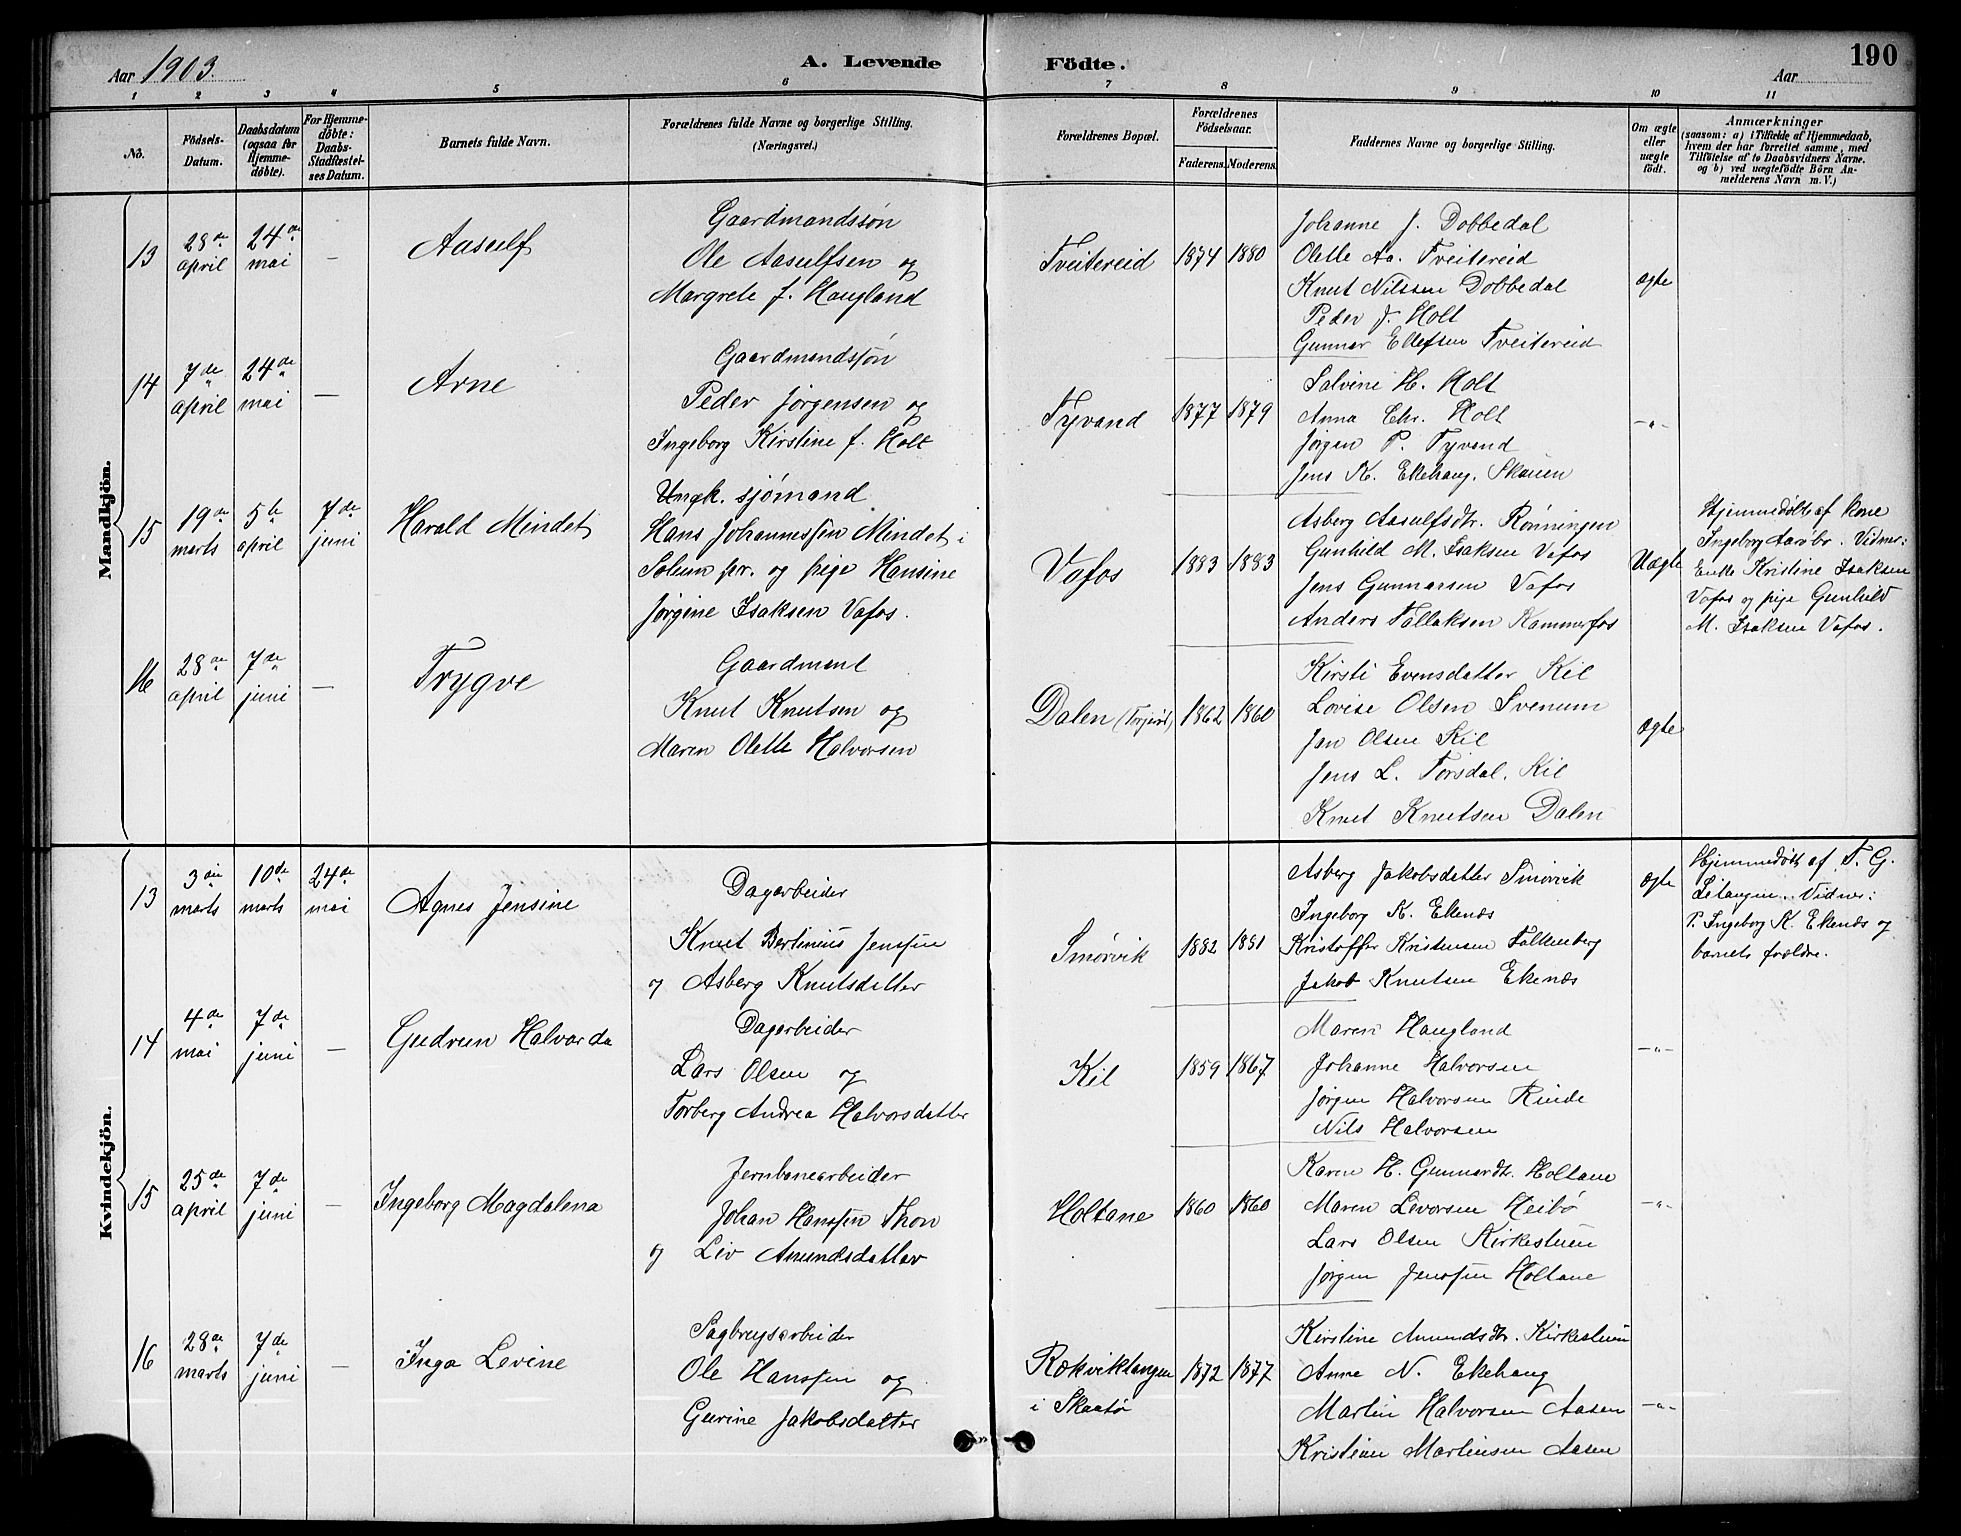 190
Aar 1903.
A. Levende
Födte.
Aar
1 2 3 4 5 6 7 8 9 10 11
No.
Födsels-Datum.
Daabsdatum (ogsaa for Hjemme-døbte).
For Hjemme-døbte: Daabs-Stadfæstel-ses Datum.
Barnets fulde Navn.
Forældrenes fulde Navne og borgerlige Stilling.
(Næringsvei.)
Forældrenes Bopæl.
Forældrenes Födselsaar.
Faderens. Moderens.
Faddernes Navne og borgerlige Stilling.
Om ægte eller uægte födt.
Anmærkninger
(saasom: a) i Tilfælde af Hjemmedaab,
hvem der har forrettet samme, med
Tilföielse af to Daabsvidners Navne.
og b) ved uægtefödte Börn An-
melderens Navn m. V.)
Mandkjön.
13
28de april
24de mai
—
Aasulf
Gaardmandssøn
Ole Aasulfsen og
Margrete f. Haugland
Tveitereid
1874 1880
Johanne J. Dobbedal
Olette Aa. Tveitereid
Knut Nilssen Dobbedal
Peder J. Holt
Gunnar Ellefsen Tveitereid
ægte
14
7de april
24de mai
—
Arne
Gaardmandssøn
Peder Jørgensen og
Ingeborg Kirstine f. Holt
Tyvand
1877 1879
Salvine H. Holt
Anna Chr. Holt
Jørgen P. Tyvand
Jens K. Ekehaug, Skauen
—"—
15
19de marts
5te april
7de juni
Harald Mindet
Ungk. sjømand
Hans Johannessen Mindet i
Solum pr. og pige Hansine
Jørgine Isaksen Vafos.
Vafos
1883 1883
Asberg Aasulfsdtr. Rønningen
Gunhild M. Isaksen Vafos
Jens Gunnarsen Vafos
Anders Tollaksen Kammerfos
Uægte
Hjemmedøbt af kone
Ingeborg Aarøbr. Vidner:
Enke Kristine Isaksen
Vafos og pige Gunhild
M. Isaksen Vafos.
16
28de april
7de juni
—
Trygve
Gaardmand
Knut Knutsen og
Maren Olette Halvorsen
Dalen
1862 1860
Kirsti Evensdatter Kil
Lovise Olsen Svenum
Jan Olsen Kil
Jens L. Torsdal. Kil
Knut Knutsen Dalen
ægte
Kvindekjön.
13
3die marts
10de marts
24de mai
Agnes Jensine
Dagarbeider
Knut Bertinius Jenssen
og Asberg Knutsdatter
Smørvik
1882 1881
Asberg Jakobsdatter Smørvik
Ingeborg K. Ekenæs
Kristoffer Kristensen Falkenberg
Jakob Knutsen Ekenæs
ægte
Hjemmedøbt af T. G.
Litangen. Vidner:
P. Ingeborg K. Ekenæs og
barnets forældre.
14
4de mai
7de juni
—
Gudrun Halvarda
Dagarbeider
Lars Olsen og
Torberg Andrea Halvorsdatter
Kil
1859 1867
Maren Haugland
Johanne Halvorsen
Jørgen Halvorsen Rinde
Nils Halvorsen
—"—
15
25de april
7de juni
—
Ingeborg Magdalena
Jernbanearbeider
Johan Hanssen Thon
og Liv Amundsdatter
Holtane
1860 1860
Karen H. Gunnardtr. Holtane
Maren Levorsen Heibø
Lars Olsen Kirkestuen
Jørgen Jenssen Holtane
—"—
16
28de marts
7de juni
—
Inga Levine
Sagbrugsarbeider
Ole Hanssen og
Gurine Jakobsdatter
Rækviktangen
i Skaatø
1872 1877
Kirstine Amundsdtr. Kirkestuen
Anne N. Ekehaug
Martin Halvorsen Aasen
Kristian Martinsen Aasen
—"—